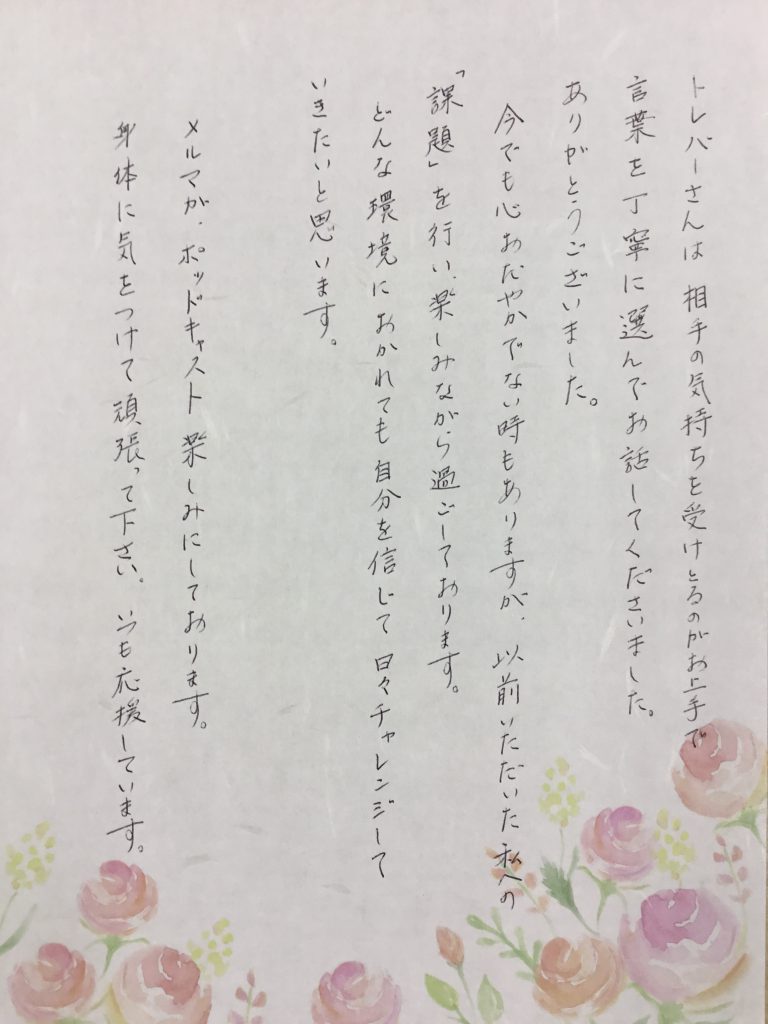 トレバーさんは 相手の気持ちを受けとるのがお上手で
言葉を丁寧に選んでお話してくださいました。
ありがとうございました。
今でも心おだやかでない時もありますが、以前いただいた私への
「課題」を行い、楽しみながら過ごしております。
どんな環境におかれても自分を信じて日々チャレンジして
いきたいと思います。
メルマガ、ポッドキャスト 楽しみにしております。
身体に気をつけて頑張って下さい。いつも応援しています。